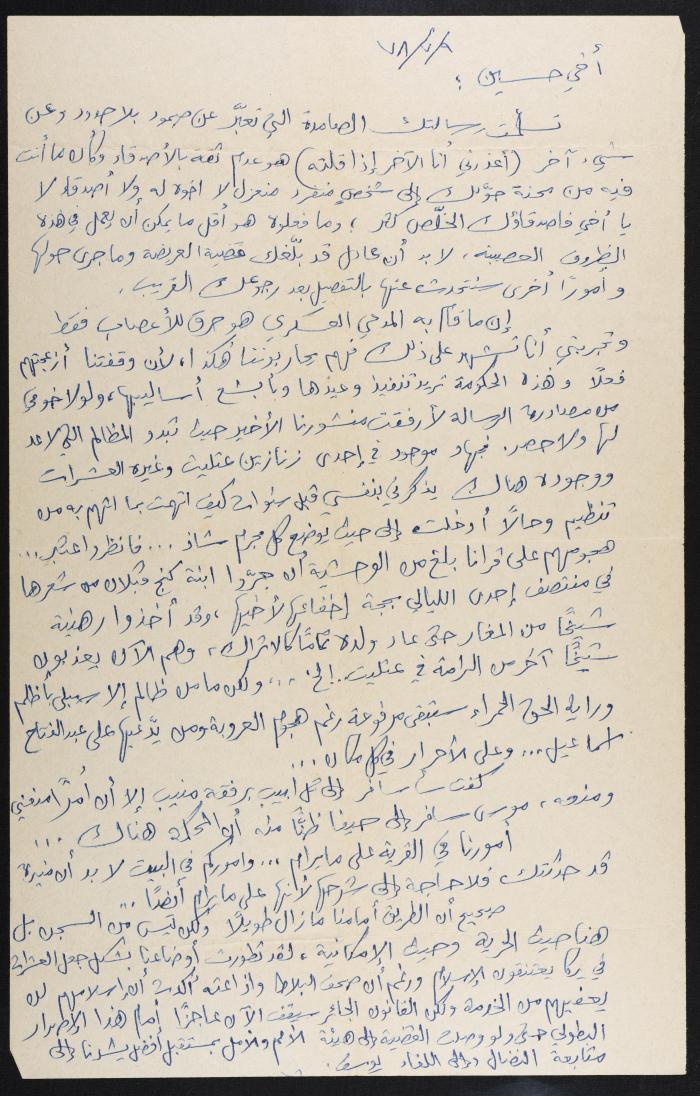 ٧٨/٧/٩
أخي حسين ؛
تسلمت رسالتك الصامدة التي تعبّر عن صمود بلا حدود وعن
شيء آخر (أعذرني أنا الآخر إذا قلته) هو عدم ثقة بالأصدقاء وكأن ما أنت
فيه من محنة حوّلك إلى شخص منفرد منعزل لا اخوة له ولا أصدقاء لا
يا أخي فاصدقاؤك الخلّص كثر ، وما فعلوه هو أقل ما يمكن أن يعمل في هذه
الظروف العصيبة ، لا بد أن عادل قد بلّغك قضية العريضة وما جرى حولها
وأمورًا أخرى سنتحدث عنها بالتفصيل بعد رجوعك القريب .
إن ما قام به المدعي العسكري هو حرق للأعصاب فقط
وتجربتي أنا تشهد على ذلك فهم يحاربوننا هكذا ، لأن وقفتنا أزعجتهم
فعلًا وهذه الحكومة تريد تنفيذ وعيدها وبأبشع أساليبها ، ولولا خوفي
من مصادرة الرسالة لأرفقت منشورنا الأخير حيث تبدو المظالم التي لا عد
لها ولا حصر . فجهاد موجود في إحدى زنازين عتليت وغيره العشرات
ووجوده هناك يذكرني بنفسي قبل سنوات كيف اتهمت بما اتهم به من
تنظيم وحالًا أدخلت إلى حيث يوضع كل مجرم شاذ ... فانظر واعتبر ...
هجومهم على قرانا بلغ من الوحشية أن جرّوا ابنة كنج قبلان من شعرها
في منتصف إحدى الليالي بحجة إخفائها لأخيها ، وقد أخذوا رهينة
شيخًا من المغار حتى عاد ولده تمامًا كالاتراك ، وهم الآن يعذبون
شيخًا آخر من الرامة في عتليت . إلخ ... ولكن ما من ظالم إلا سيبلى بأظلم
وراية الحق الحمراء ستبقى مرفوعة رغم هجوم العروبة ومن يدّعيها على عبد الفتاح
اسماعيل ... وعلى الأحرار في كل مكان ...
كنت سأسافر إلى تل أبيب برفقة منيب إلا أن أمرًا منعني
ومنعه ، موسى سافر إلى حيفا ظنًا منه أن المحكمة هناك ...
أمورنا في القرية على ما يرام ... وأموركم في البيت لا بد أن منيرة
قد حدثتك فلا حاجة إلى شرحها لأنها على ما يرام أيضًا ...
صحيح أن الطريق أمامنا ما زال طويلًا ولكن ليس من السجن بل
هنا حيث الحرية وحيث الإمكانية ، لقد تطورت أوضاعنا بشكل جعل العشرات
في يركا يعتنقون الإسلام ورغم أن صحف البلاط وإذاعته أكدت أن اسلامهم لن
يعفيهم من الخدمة ولكن القانون الجائر سيقف الآن عاجزًا أمام هذا الإصرار
البطولي حتى ولو وصلت القضية إلى هيئة الأمم والأمل بمستقبل أفضل يشدنا إلى
متابعة النضال وإلى اللقاء يوسف .